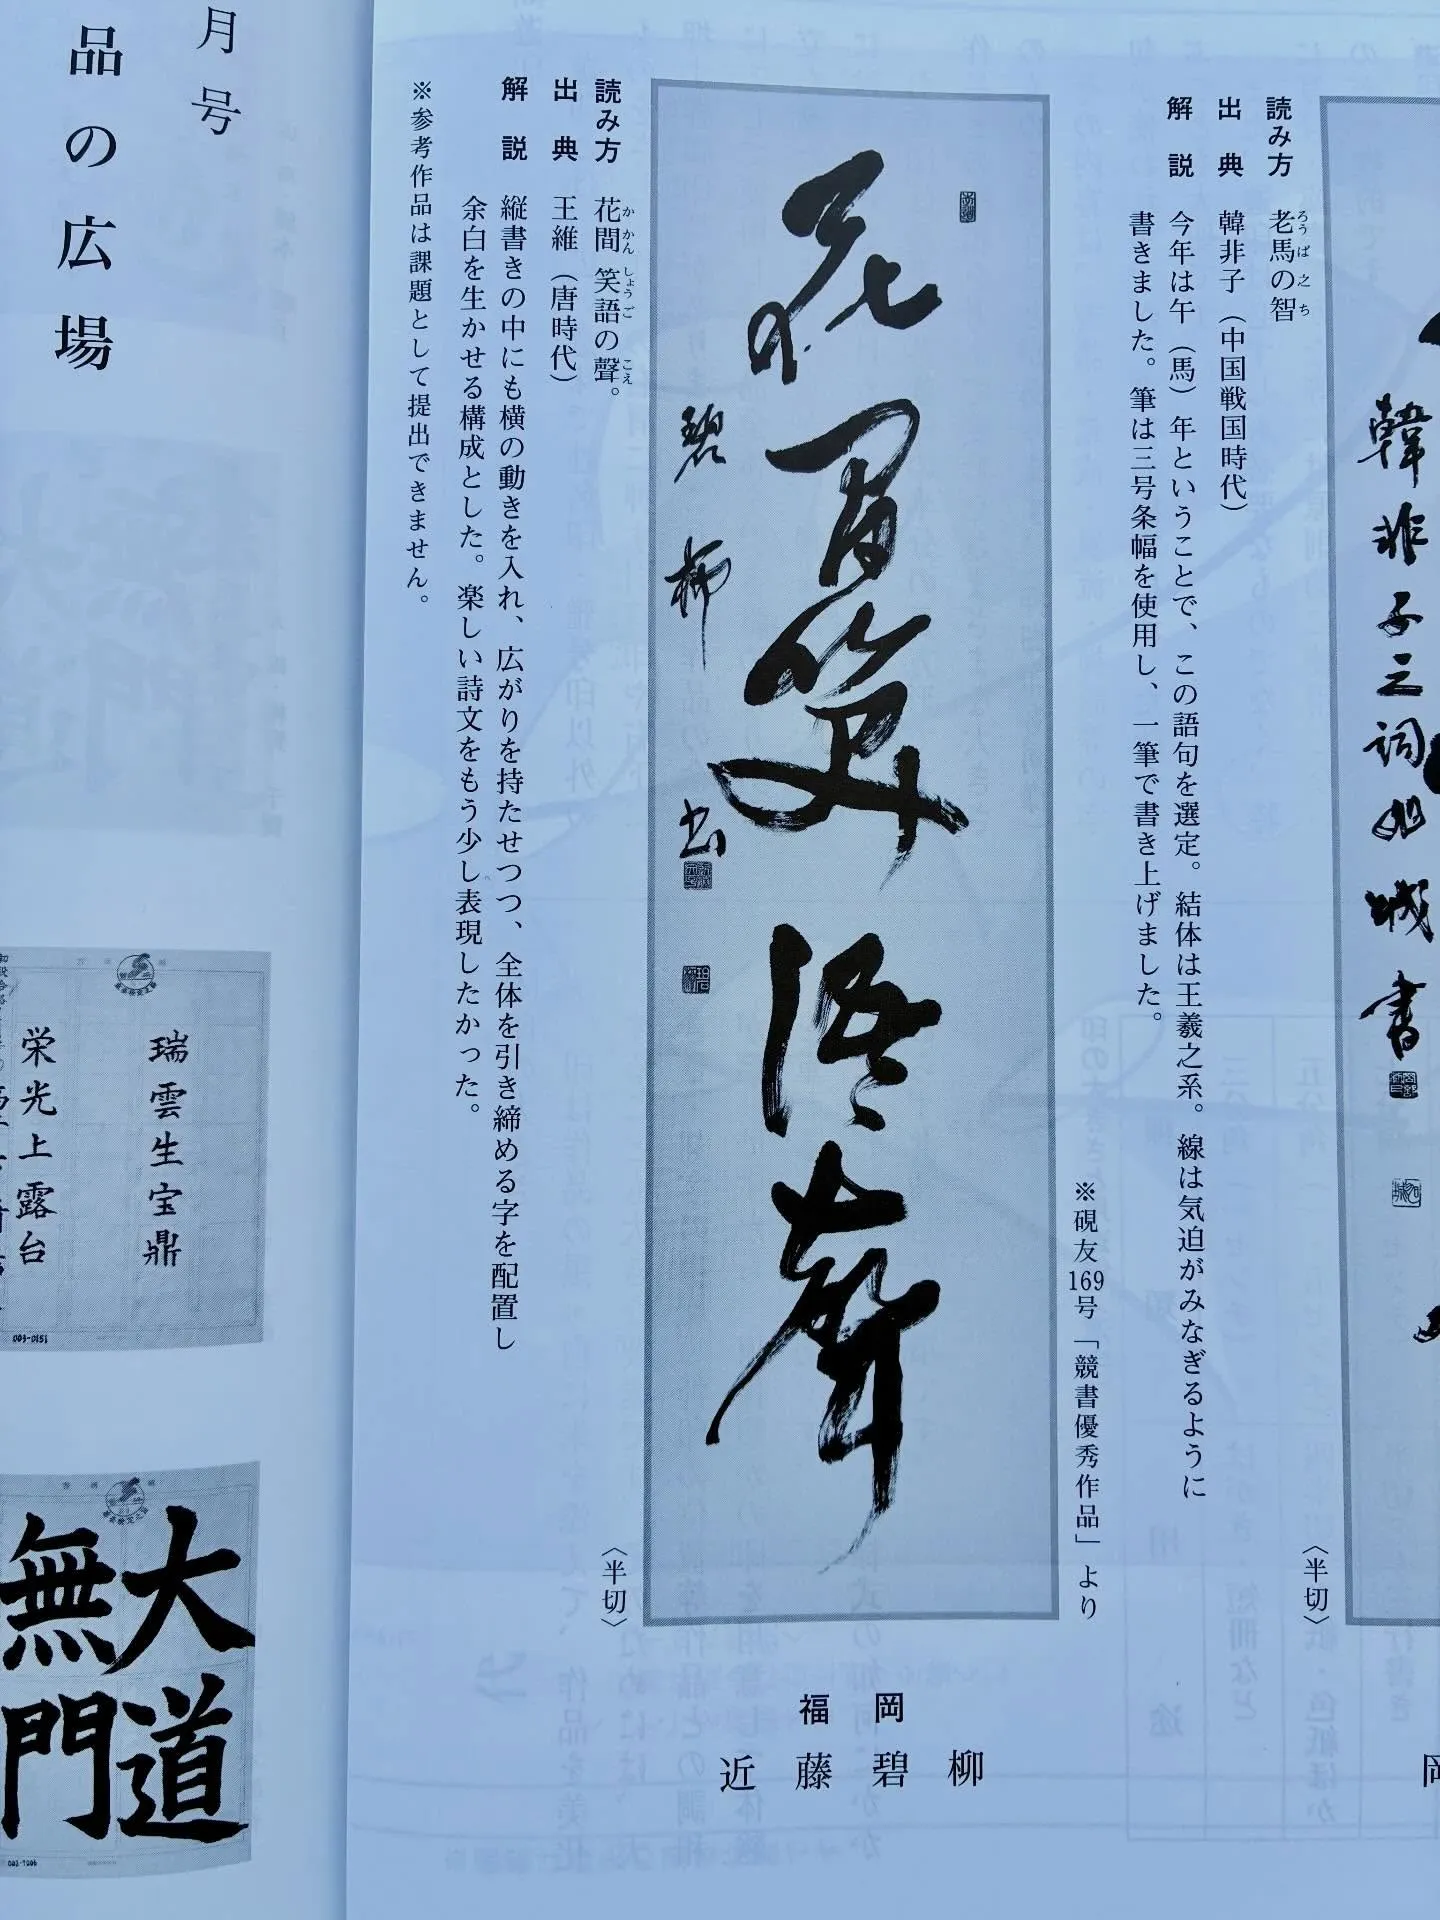 読み方　老馬の智
ろうばのち
出典　韓非子（中国戦国時代）
解説　今年は午（馬）年ということで、この語句を選定。結体は王羲之系。線は気迫がみなぎるように
書きました。筆は三号条幅を使用し、一筆で書き上げました。
〈半切〉
韓非子之詞
書
※硯友169号「競書優秀作品」より
花間笑語聲
碧柳書
福岡
近藤碧柳
読み方　花間笑語の聲。
かかんしょうごこえ
出典　王維（唐時代）
解説　縦書きの中にも横の動きを入れ、広がりを持たせつつ、全体を引き締める字を配置し
余白を生かせる構成とした。楽しい詩文をもう少し表現したかった。
※参考作品は課題として提出できません。
〈半切〉
月号
品の広場
瑞雲生宝鼎
栄光上露台
003-0151
大道
無門
003-7006